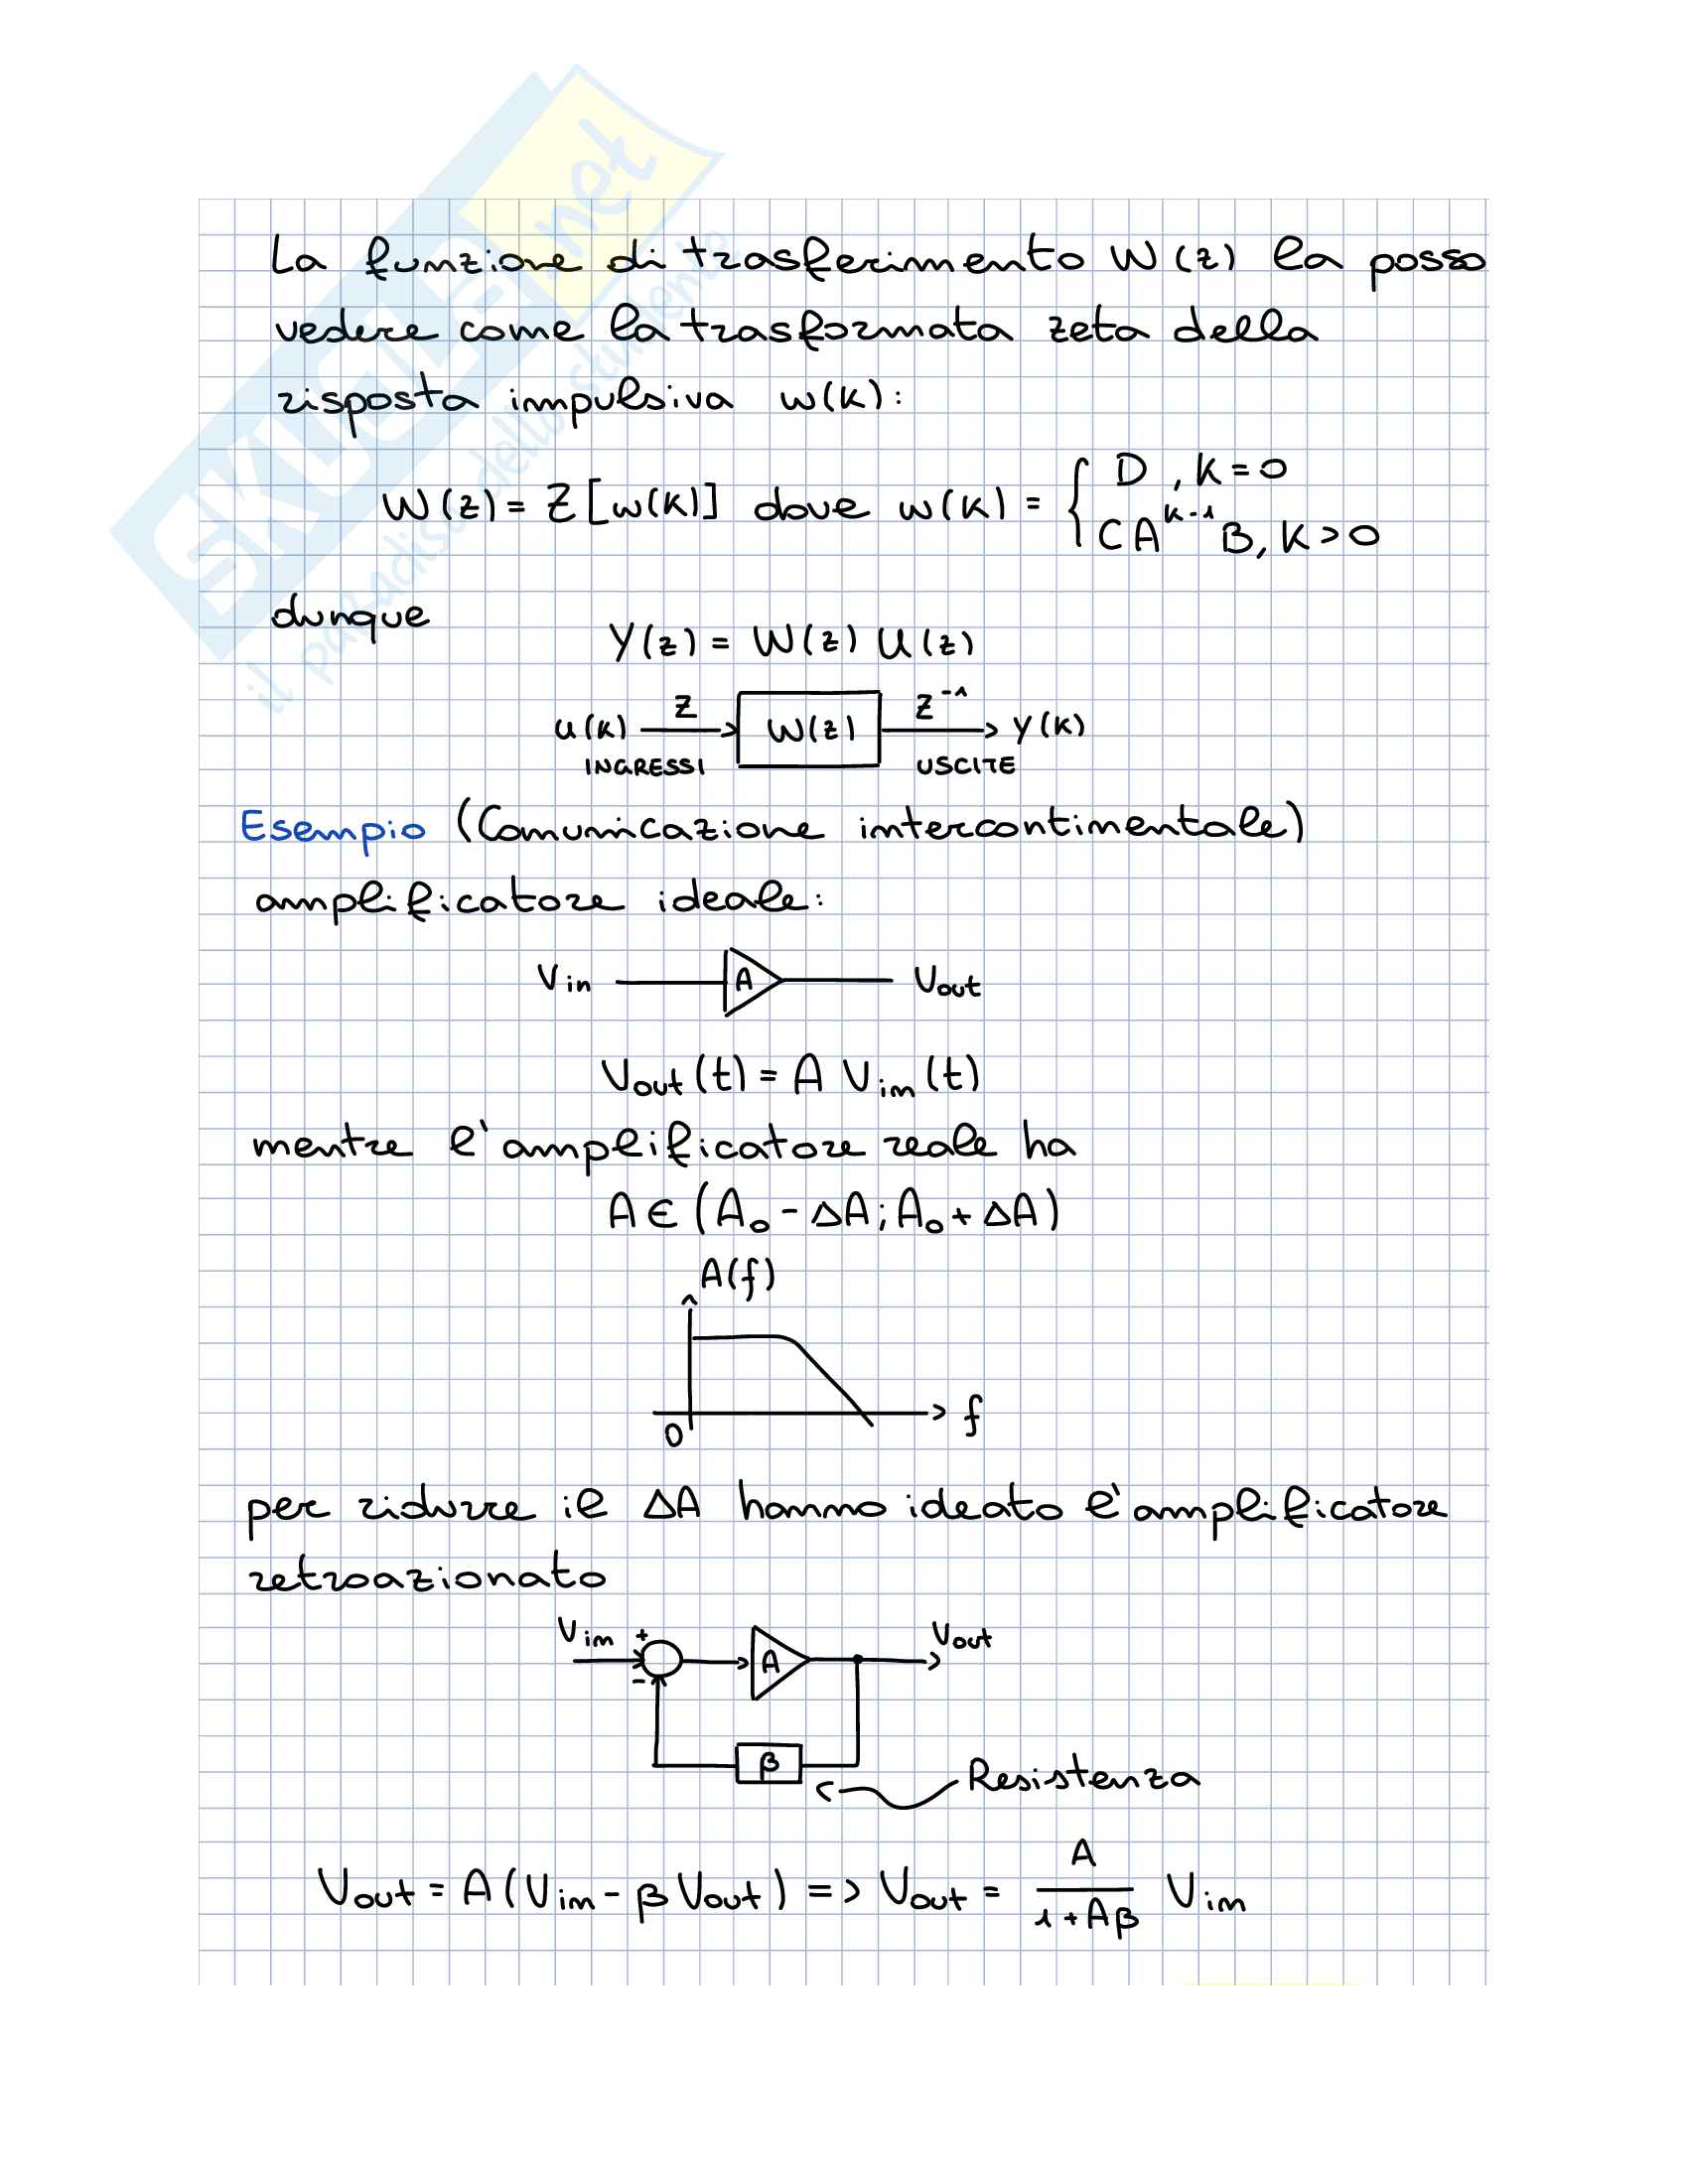 SKUOLA.net
il paradiso dello studente
La funzione di trasferimento W(z) la posso
vedere come la trasformata zeta della
risposta impulsiva w(k):
W(z) = Z[w(k)] dove w(k) = { D , k = 0
CA^{k-1} B, k > 0
dunque
Y(z) = W(z) U(z)
u(k) Z W(z) Z^{-1} y(k)
INGRESSI USCITE
Esempio (Comunicazione intercontinentale)
amplificatore ideale:
Vin A Vout
Vout(t) = A Vin(t)
mentre l'amplificatore reale ha
A ∈ (A₀ - ΔA; A₀ + ΔA)
A(f)
0 f
per ridurre il ΔA hanno ideato l'amplificatore
retroazionato
Vin + A Vout
-
β
Resistenza
Vout = A(Vin - β Vout) => Vout = A / (1 + Aβ) Vin